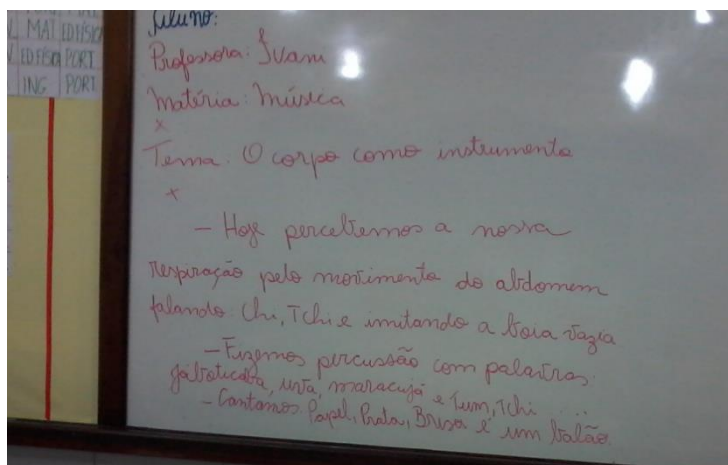 MAT ED FÍSICA
ED FÍSICA PORT.
ING PORT.
Aluno:
Professora: Ivani
Matéria: Música
x
Tema: O corpo como instrumento
x
- Hoje percebemos a nossa
respiração pelo movimento do abdomem
falando: Chi, Tchi e imitando a boia vazia
- Fizemos percussão com palavras:
jaboticaba, uva, maracujá e Tum, Tchi ...
- Cantamos: Papel, Prata, Brisa e um balão.